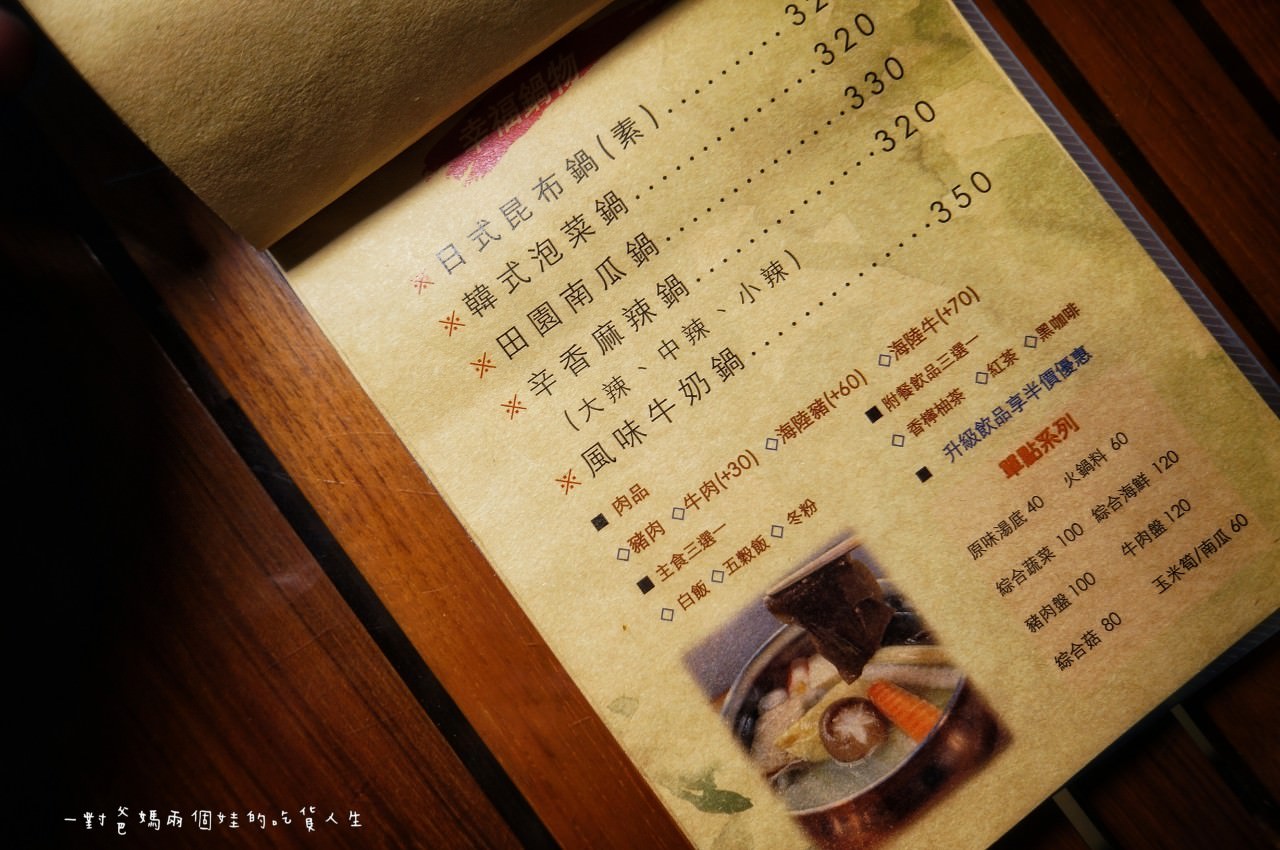 幸福鍋物
※日式昆布鍋(素)..........32
※韓式泡菜鍋..........320
※田園南瓜鍋..........330
※辛香麻辣鍋..........320
(大辣、中辣、小辣)
※風味牛奶鍋..........350
■ 肉品
◇豬肉 ◇牛肉(+30) ◇海陸豬(+60) ◇海陸牛(+70)
■ 主食三選一
◇白飯 ◇五穀飯 ◇冬粉
■ 附餐飲品三選一
◇香檸柚茶 ◇紅茶 ◇黑咖啡
■ 升級飲品享半價優惠
單點系列
原味湯底 40 火鍋料 60
綜合蔬菜 100 綜合海鮮 120
豬肉盤 100 牛肉盤 120
綜合菇 80 玉米筍/南瓜 60
一對爸媽兩個娃的吃貨人生